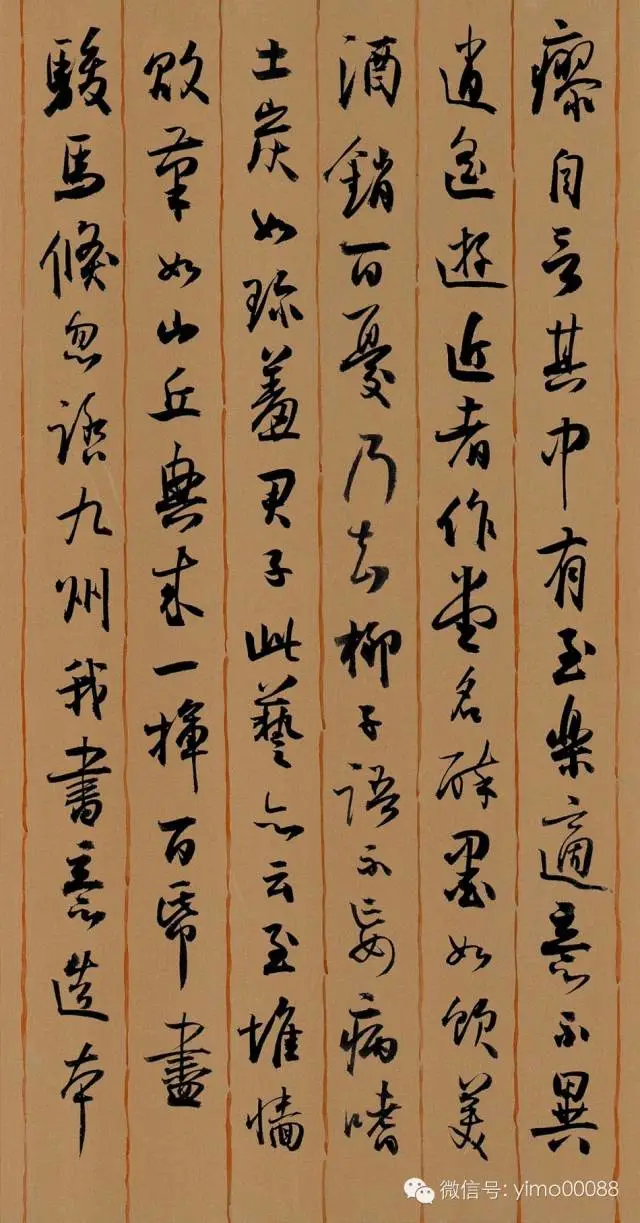 瘳自言其中有至樂適意不異
逍遥遊近者作堂名醉墨如飲美
酒銷百憂乃知柳子語不妄病嗜
土炭如珍羞君子此藝亦云至堆墻
敗筆如山丘興來一揮百紙盡
駿馬倏忽踏九州我書意造本
微信号: yimo00088